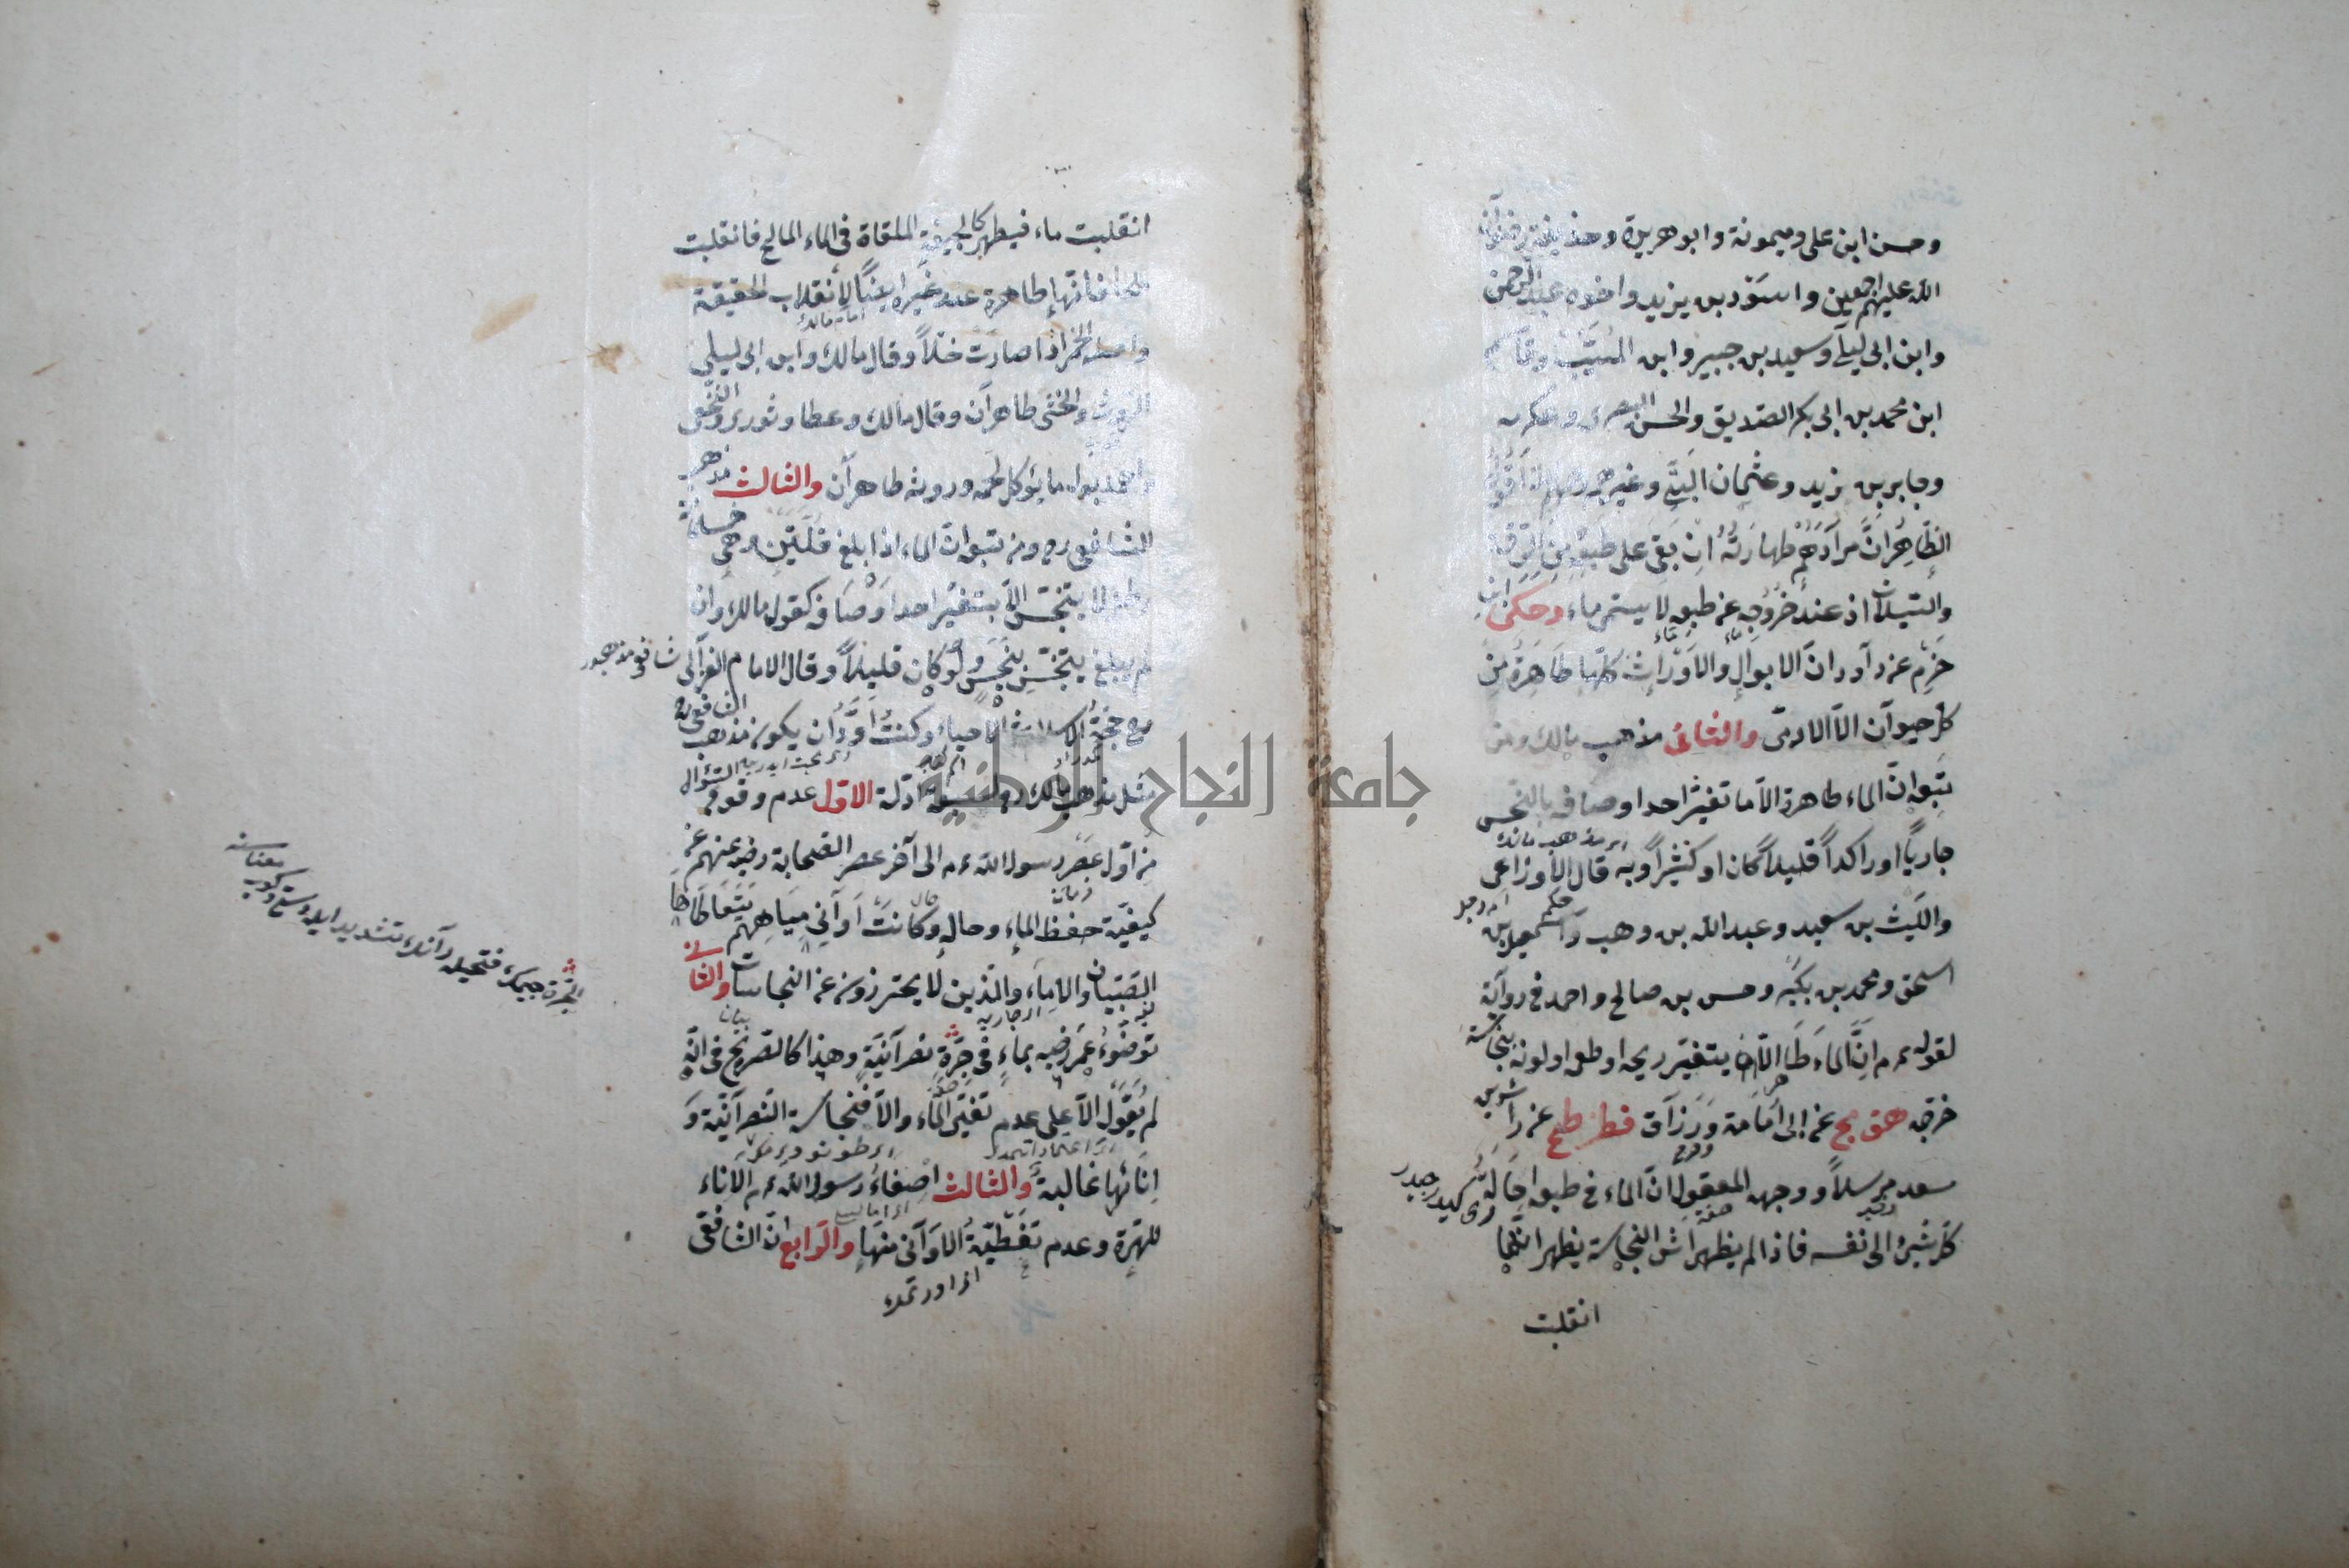 وحسن ابن على وميمونة وابو هريرة وحذيفة رضوان
الله عليهم اجمعين واسود بن يزيد واخوه عبد الرحمن
وابن ابى ليلى وسعيد بن جبير وابن المسيب وقاسم
ابن محمد بن ابى بكر الصديق والحسن البصرى وعكرمه
وجابر بن زيد وعثمان البتى وغيرهم
الظاهر انّ مرادهم طهارته ان بقى على طبعه من الرقة
والسيلان اذ عند خروجه عن طبعه لا يسمى ماء وحكى ابن
حزم عن داود ان الابوال والاوراث كلها طاهرة من
كل حيوان الا الادمى والثانى مذهب مالك ومن
تبعه ان الماء طاهرة الا ما تغير احد اوصافه بالنجس
جاريًا او راكداً قليلاً كان او كثيراً وبه قال الاوزاعى
والليث بن سعيد وعبد الله بن وهب واسمعيل بن
اسحق ومحمد بن بكير وحسن بن صالح واحمد فى رواية
لقوله عم انّ الماء طاهر الا ان يتغير ريحه او طعمه او لونه بنجاسة
خرجه هق مج عن ابى امامة ورزاق قط طح عن راشد بن
سعد مرسلاً ووجهه المعقول انّ الماء فى طبعه احالة
كل شئ الى نفسه فاذا لم يظهر اثر النجاسة يظهر انها
انقلبت
انقلبت ماء فيطهر كالجيفة الملقاة فى الماء المالح فانقلبت
ملحا فانها طاهرة عند غيرنا لانقلاب الحقيقة
واصله الخمر اذا صارت خلاً وقال مالك وابن ابى ليلى
الروث والخثى طاهران وقال مالك وعطا وثورى والنخعى
واحمد بول ما يؤكل لحمه وروثه طاهران والثالث مذهب
الشافعى رح ومن تبعه ان الماء اذا بلغ قلتين وهى خمسمائة
رطل لا يتنجس الا بتغير احد اوصافه كقول مالك وان
لم يبلغ يتنجس بنجس ولو كان قليلاً وقال الامام الغزالى
رح حجة الاسلام فى الاحياء وكنت اود ان يكون مذهب الشافعى رح
مثل مذهب مالك رح ادلة الاول عدم وقوع السؤال
من اول عصر رسول الله عم الى آخر عصر الصحابة رضى عنهم عن
كيفية حفظ الماء وحاله وكانت اوانى مياههم يتعاطاها
الصبيان والاماء والذين لا يحترزون عن النجاسات والثانى
توضؤ عمر رضيه بماء فى جرة نصرانية وهذا كالتصريح فى انه
لم يعول الا على عدم تغير الماء والا فنجاسة النصرانية و
انائها غالبة والثالث اصغاء رسول الله عم الاناء
للهرة وعدم تغطية الاوانى منها والرابع ان الشافعى
جامعة النجاح الوطنية